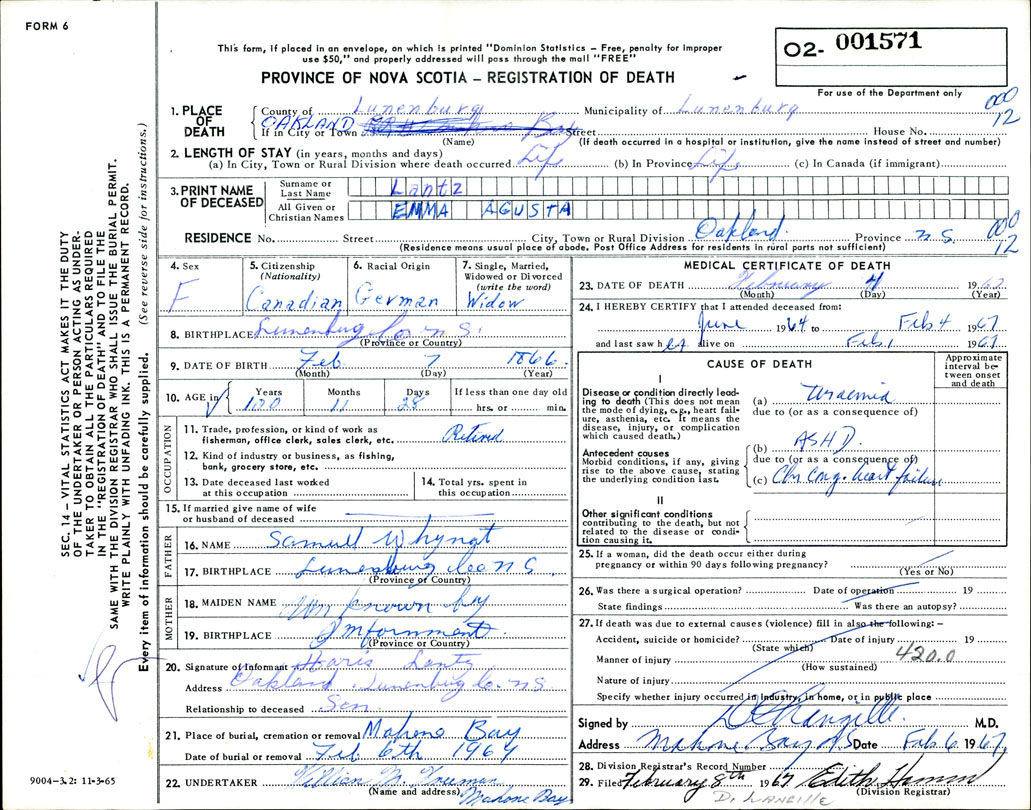 FORM 6
This form, if placed in an envelope, on which is printed "Dominion Statistics – Free, penalty for improper
use $50," and properly addressed will pass through the mail "FREE"
PROVINCE OF NOVA SCOTIA – REGISTRATION OF DEATH
O2- 001571
For use of the Department only
000
12
1. PLACE OF DEATH
County of Lunenburg Municipality of Lunenburg
OAKLAND
If in City or Town Street House No.
(Name) (If death occurred in a hospital or institution, give the name instead of street and number)
2. LENGTH OF STAY (in years, months and days)
(a) In City, Town or Rural Division where death occurred Life (b) In Province Life (c) In Canada (if immigrant)
3. PRINT NAME OF DECEASED
Surname or Last Name Lantz
All Given or Christian Names EMMA AGUSTA
RESIDENCE No. Street City, Town or Rural Division Oakland Province N.S.
(Residence means usual place of abode. Post Office Address for residents in rural parts not sufficient)
000
12
4. Sex
F
5. Citizenship
(Nationality)
Canadian
6. Racial Origin
German
7. Single, Married,
Widowed or Divorced
(write the word)
Widow
8. BIRTHPLACE Lunenburg Co. N.S.
(Province or Country)
9. DATE OF BIRTH Feb 7 1866
(Month) (Day) (Year)
10. AGE in Years Months Days If less than one day old
100 11 28 hrs. or min.
OCCUPATION
11. Trade, profession, or kind of work as
fisherman, office clerk, sales clerk, etc. Retired
12. Kind of industry or business, as fishing,
bank, grocery store, etc.
13. Date deceased last worked
at this occupation
14. Total yrs. spent in
this occupation
15. If married give name of wife
or husband of deceased
FATHER
16. NAME Samuel Whynot
17. BIRTHPLACE Lunenburg Co N S.
(Province or Country)
MOTHER
18. MAIDEN NAME Un known by
19. BIRTHPLACE Imfornment.
(Province or Country)
20. Signature of informant Haris Lantz
Address Oakland Lunenburg Co. N S
Relationship to deceased Son
21. Place of burial, cremation or removal Mahone Bay
Date of burial or removal Feb 6th 1967
22. UNDERTAKER
(Name and address) Mahone Bay
MEDICAL CERTIFICATE OF DEATH
23. DATE OF DEATH February 4 1967
(Month) (Day) (Year)
24. I HEREBY CERTIFY that I attended deceased from:
June 1964 to Feb 4 1967
and last saw her alive on Feb. 1 1967
CAUSE OF DEATH
Approximate
interval be-
tween onset
and death
I
Disease or condition directly lead-
ing to death (This does not mean
the mode of dying, e.g., heart fail-
ure, asthenia, etc. It means the
disease, injury, or complication
which caused death.)
(a) Uraemia
due to (or as a consequence of)
Antecedent causes
Morbid conditions, if any, giving
rise to the above cause, stating
the underlying condition last.
(b) ASHD.
due to (or as a consequence of)
(c) Chr cong. heart failure
II
Other significant conditions
contributing to the death, but not
related to the disease or condi-
tion causing it.
25. If a woman, did the death occur either during
pregnancy or within 90 days following pregnancy?
(Yes or No)
26. Was there a surgical operation? Date of operation 19
State findings Was there an autopsy?
27. If death was due to external causes (violence) fill in also the following: –
Accident, suicide or homicide? Date of injury 19
(State which) 420.0
Manner of injury
(How sustained)
Nature of injury
Specify whether injury occurred in industry, in home, or in public place
Signed by M.D.
Address Mahone Bay N S Date Feb 6 1967
28. Division Registrar's Record Number
29. Filed February 8th 1967 Edith Hamm
(Division Registrar)
D. LANGILLE
SEC. 14 – VITAL STATISTICS ACT MAKES IT THE DUTY
OF THE UNDERTAKER OR PERSON ACTING AS UNDER-
TAKER TO OBTAIN ALL THE PARTICULARS REQUIRED
IN THE "REGISTRATION OF DEATH" AND TO FILE THE
SAME WITH THE DIVISION REGISTRAR WHO SHALL ISSUE THE BURIAL PERMIT.
WRITE PLAINLY WITH UNFADING INK. THIS IS A PERMANENT RECORD.
Every item of information should be carefully supplied. (See reverse side for instructions.)
9004-3.2: 11-3-65